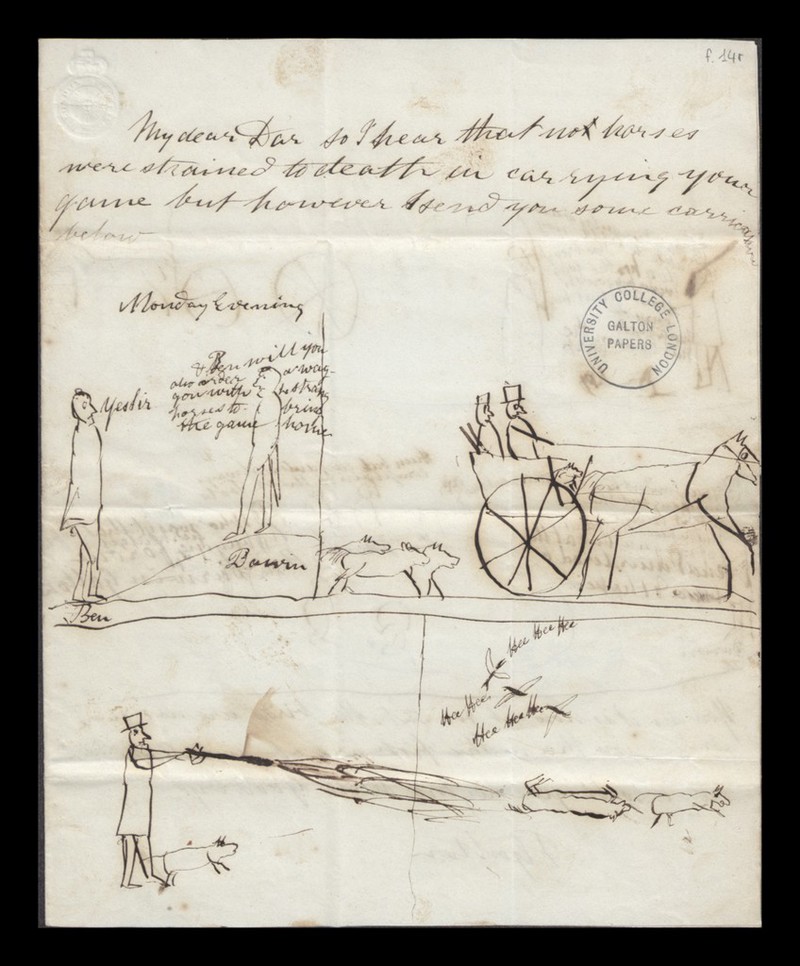 f. 14r
My dear Dar so I hear that not horses
were strained to death in carrying your
game but however I send you some carricatures
below
Monday Evening
& Ben will you
also order a wag-
gon with 4 strong
horses to bring
the game home
Yes sir
UNIVERSITY COLLEGE LONDON
GALTON
PAPERS
Ben
Hee Hee Hee
Hee Hee
Hee Hee Hee